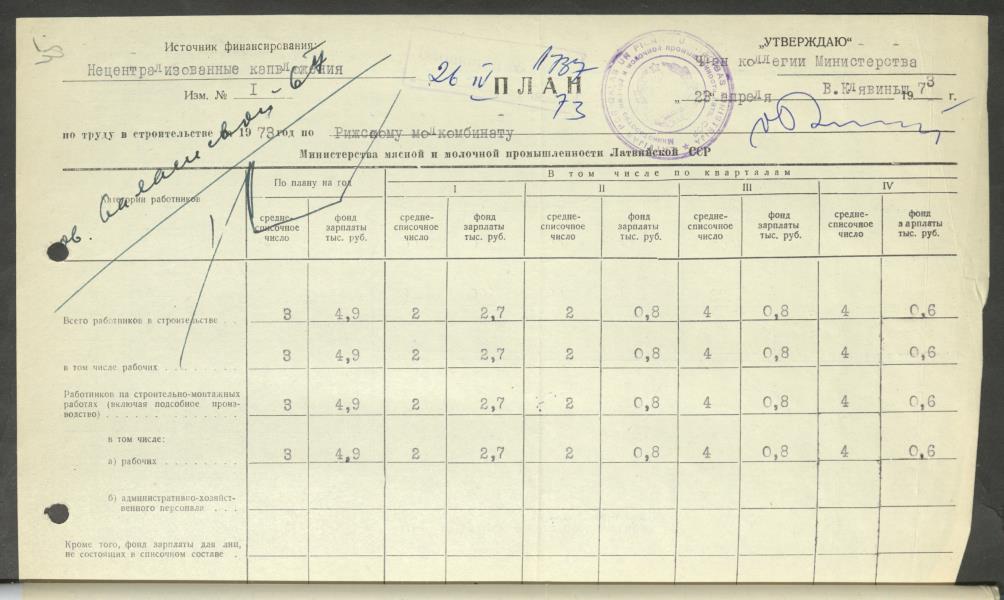 Источник финансирования:
Нецентрализованные капвложения
Изм. № I
26 IV 1737
73
ПЛАН
„УТВЕРЖДАЮ“
Член коллегии Министерства
В.Клявиньш
„ 23 апреля 1973 г.
по труду в строительстве 1973 год по Рижскому молкомбинату
Министерства мясной и молочной промышленности Латвийской ССР
Категории работников
По плану на год
В том числе по кварталам
I II III IV
средне-списочное число
фонд зарплаты тыс. руб.
средне-списочное число
фонд зарплаты тыс. руб.
средне-списочное число
фонд зарплаты тыс. руб.
средне-списочное число
фонд зарплаты тыс. руб.
средне-списочное число
фонд зарплаты тыс. руб.
Всего работников в строительстве . . 3 4,9 2 2,7 2 0,8 4 0,8 4 0,6
в том числе рабочих . . . . . . . . 3 4,9 2 2,7 2 0,8 4 0,8 4 0,6
Работников на строительно-монтажных
работах (включая подсобное произ-
водство) . . . . . . . . . . . . . 3 4,9 2 2,7 2 0,8 4 0,8 4 0,6
в том числе:
а) рабочих . . . . . . . . 3 4,9 2 2,7 2 0,8 4 0,8 4 0,6
б) административно-хозяйст-
венного персонала . . .
Кроме того, фонд зарплаты для лиц,
не состоящих в списочном составе .